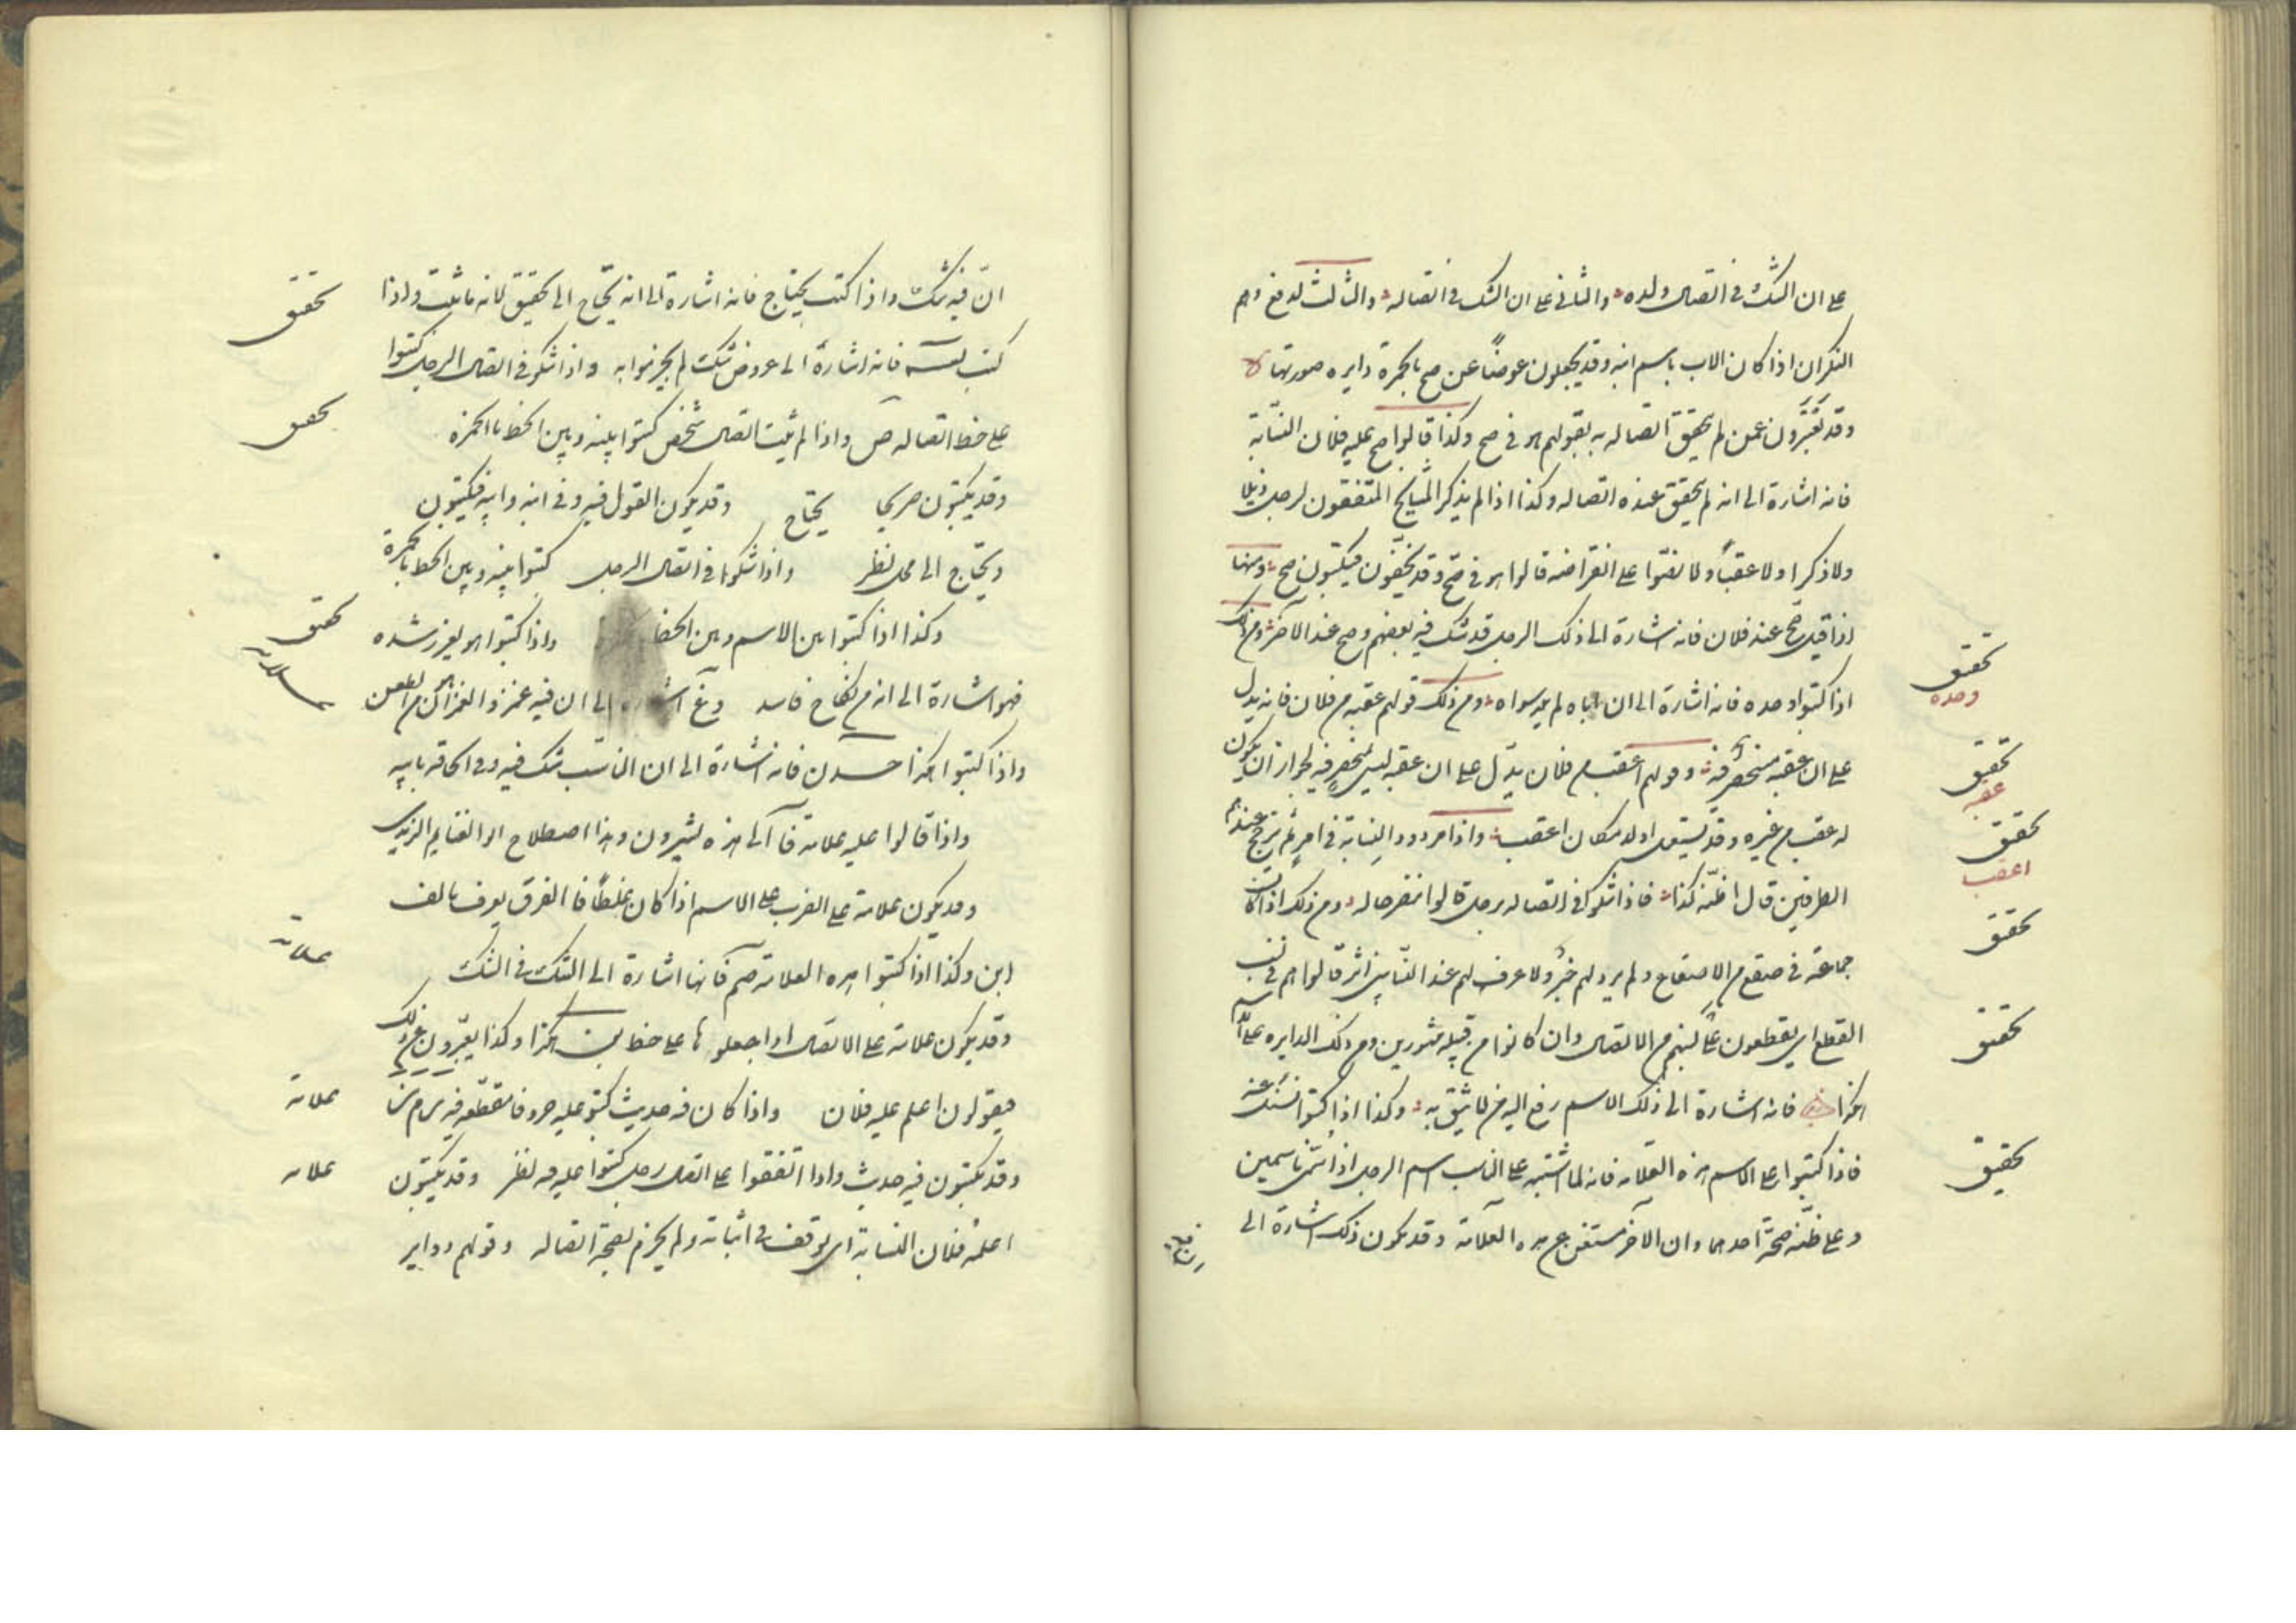 على ان الشك في اتصال ولده والثاني على ان الشك في اتصاله والثالث لدفع وهم
التكرار اذا كان الاب باسم ابنه وقد يجعلون عوضاً عن صح بالحمرة دايره صورتها
وقد يعبّرون عمن لم يتحقق اتصاله به بقولهم هو في صح وكذا قالوا صح عليه فلان النسّابة
فانه اشارة الى انه لم يتحقق عنده اتصاله وكذا اذا لم يذكر المشايخ المتفقون لرجل ذيلا
ولا ذكرا ولا عقباً ولا نصّوا على انقراضه قالوا هو في صح وقد يخفّفون فيكتبون صح ومنها
اذا قيل صح عند فلان فانه اشارة الى ذلك الرجل قد شك فيه بعضهم وصح عند الآخر ومن ذلك
اذا كتبوا وحده فانه اشارة الى ان اباه لم يلد سواه ومن ذلك قولهم عقبه من فلان فانه يدل
على ان عقبه منحصر فيه وقولهم اعقب من فلان يدل على ان عقبه ليس بمنحصر فيه لجواز ان يكون
له عقب من غيره وقد يستعمل اولد مكان اعقب واذا تردد النسابة في امر ولم يترجح عنده
الطرفين قال اظنه كذا فاذا شكوا في اتصاله برجل قالوا ينظر حاله ومن ذلك اذا كانت
جماعة في صقع من الاصقاع ولم يرد لهم خبر ولا عرف لهم عند النسّابين اثر قالوا هم في نسب
القطع اي يقطعون عن الاتصال وان كانوا من قبيلة مشهورين ومن ذلك الدايره على اسم
هكذا فانه اشارة الى ذلك الاسم رفع اليه من لا يثق به وكذا اذا كتبوا
فاذا كتبوا على الاسم هذه العلامة فانه لما اشتبه على الناسب اسم الرجل اذا سمّي باسمين
وعلى ظنّه صحّة احدهما وان الآخر مستغن عن هذه العلامة وقد يكون ذلك اشارة الى
تحقيق
وحده
تحقيق
عقبه
تحقيق
اعقب
تحقيق
تحقيق
تحقيق
انّ فيه شكّ واذا كتب يحتاج فانه اشارة الى انه يحتاج الى تحقيق لانه ما ثبت واذا
كتب فانه اشارة الى عروض شك لم يجزموا به واذا شكوا في اتصال الرجل كتبوا
على خط اتصاله ص واذا لم يثبت اتصال شخص كتبوا بينه وبين الخط بالحمرة
وقد يكتبون صريحا يحتاج وقد يكون القول فيه وفي ابنه وابيه فيكتبون
ويحتاج الى محل نظر واذا شكوا في اتصال الرجل كتبوا بينه وبين الخط بالحمرة
وكذا اذا كتبوا بين الاسم وبين الخط واذا كتبوا هو لغير رشده
فهو اشارة الى انه من نكاح فاسد اشارة الى ان فيه غمز والغمز اهون من الطعن
واذا كتبوا هكذا فانه اشارة الى ان الناسب شك فيه وفي الحاقه بابيه
واذا قالوا عليه علامة فالى هذه يشيرون وهذا اصطلاح ابو الغنايم الزيدي
وقد يكون علامة على الضرب على الاسم اذا كان غلطاً فالفرق يعرف بالف
ابن وكذا اذا كتبوا هذه العلامة فانها اشارة الى الشك في الشك
وقد يكون علامة على الاتصال اذا جعلوها على خط بن هكذا وكذا يعبّرون عن ذلك
فيقولون اعلم عليه فلان واذا كان فيه حديث كتبوا عليه حروفا مقطّعه
وقد يكتبون فيه حديث واذا اتفقوا على اتصال رجل كتبوا عليه فيه نظر وقد يكتبون
اعلمه فلان النسابة اي توقف في اثباته ولم يجزم بصحة اتصاله وقولهم ودابر
تحقيق
تحقيق
تحقيق
علامة
علامة
علامة